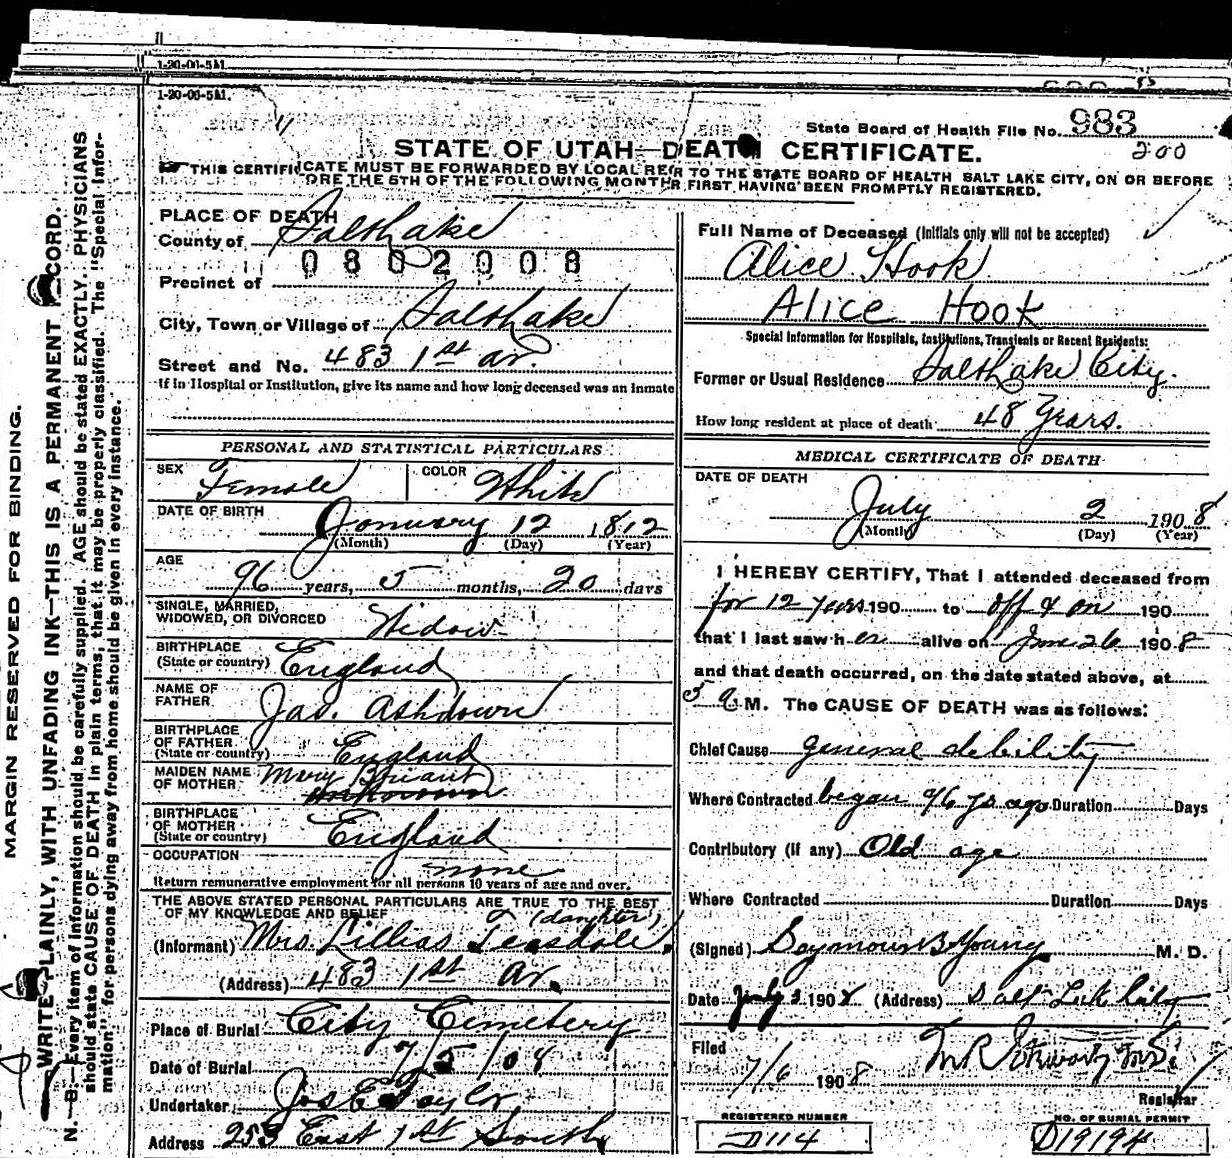 1-20-06-5M.
1-20-06-5M.
State Board of Health File No. 983
200
STATE OF UTAH—DEATH CERTIFICATE.
THIS CERTIFICATE MUST BE FORWARDED BY LOCAL RE R TO THE STATE BOARD OF HEALTH SALT LAKE CITY, ON OR BEFORE
ORE THE 5TH OF THE FOLLOWING MONTH FIRST HAVING BEEN PROMPTLY REGISTERED.
MARGIN RESERVED FOR BINDING.
WRITE PLAINLY, WITH UNFADING INK—THIS IS A PERMANENT RECORD.
N. B.—Every item of information should be carefully supplied. AGE should be stated EXACTLY. PHYSICIANS
should state CAUSE OF DEATH in plain terms, that it may be properly classified. The "Special Infor-
mation" for persons dying away from home should be given in every instance.
PLACE OF DEATH
County of Salt Lake
0802008
Precinct of
City, Town or Village of Salt Lake
Street and No. 483 1st av.
If in Hospital or Institution, give its name and how long deceased was an inmate
PERSONAL AND STATISTICAL PARTICULARS
SEX Female COLOR White
DATE OF BIRTH January 12 1812
(Month) (Day) (Year)
AGE
96 years, 5 months, 20 days
SINGLE, MARRIED,
WIDOWED, OR DIVORCED Widow
BIRTHPLACE
(State or country) England
NAME OF
FATHER Jas. Ashdown
BIRTHPLACE
OF FATHER
(State or country) England
MAIDEN NAME
OF MOTHER Mary Stuart
BIRTHPLACE
OF MOTHER
(State or country) England
OCCUPATION none
Return remunerative employment for all persons 10 years of age and over.
THE ABOVE STATED PERSONAL PARTICULARS ARE TRUE TO THE BEST
OF MY KNOWLEDGE AND BELIEF (daughter)
(Informant) Mrs. Lillias Teasdale.
(Address) 483 1st av.
Place of Burial City Cemetery
Date of Burial 7/5/08
Undertaker Jos E Taylor
Address 253 East 1st South
Full Name of Deceased (Initials only will not be accepted)
Alice Hook
Alice Hook
Special Information for Hospitals, Institutions, Transients or Recent Residents:
Former or Usual Residence Salt Lake City.
How long resident at place of death 48 Years.
MEDICAL CERTIFICATE OF DEATH
DATE OF DEATH
July 2 1908
(Month) (Day) (Year)
I HEREBY CERTIFY, That I attended deceased from
for 12 years 190 to off & on 190
that I last saw her alive on June 26 1908
and that death occurred, on the date stated above, at
5 a. M. The CAUSE OF DEATH was as follows:
Chief Cause general debility
Where Contracted began 96 ys ago Duration Days
Contributory (if any) Old age
Where Contracted Duration Days
(Signed) Seymour B Young M. D.
Date July 3 1908 (Address) Salt Lake City
Filed
7/6 1908
Registrar
REGISTERED NUMBER
D114
NO. OF BURIAL PERMIT
D19194